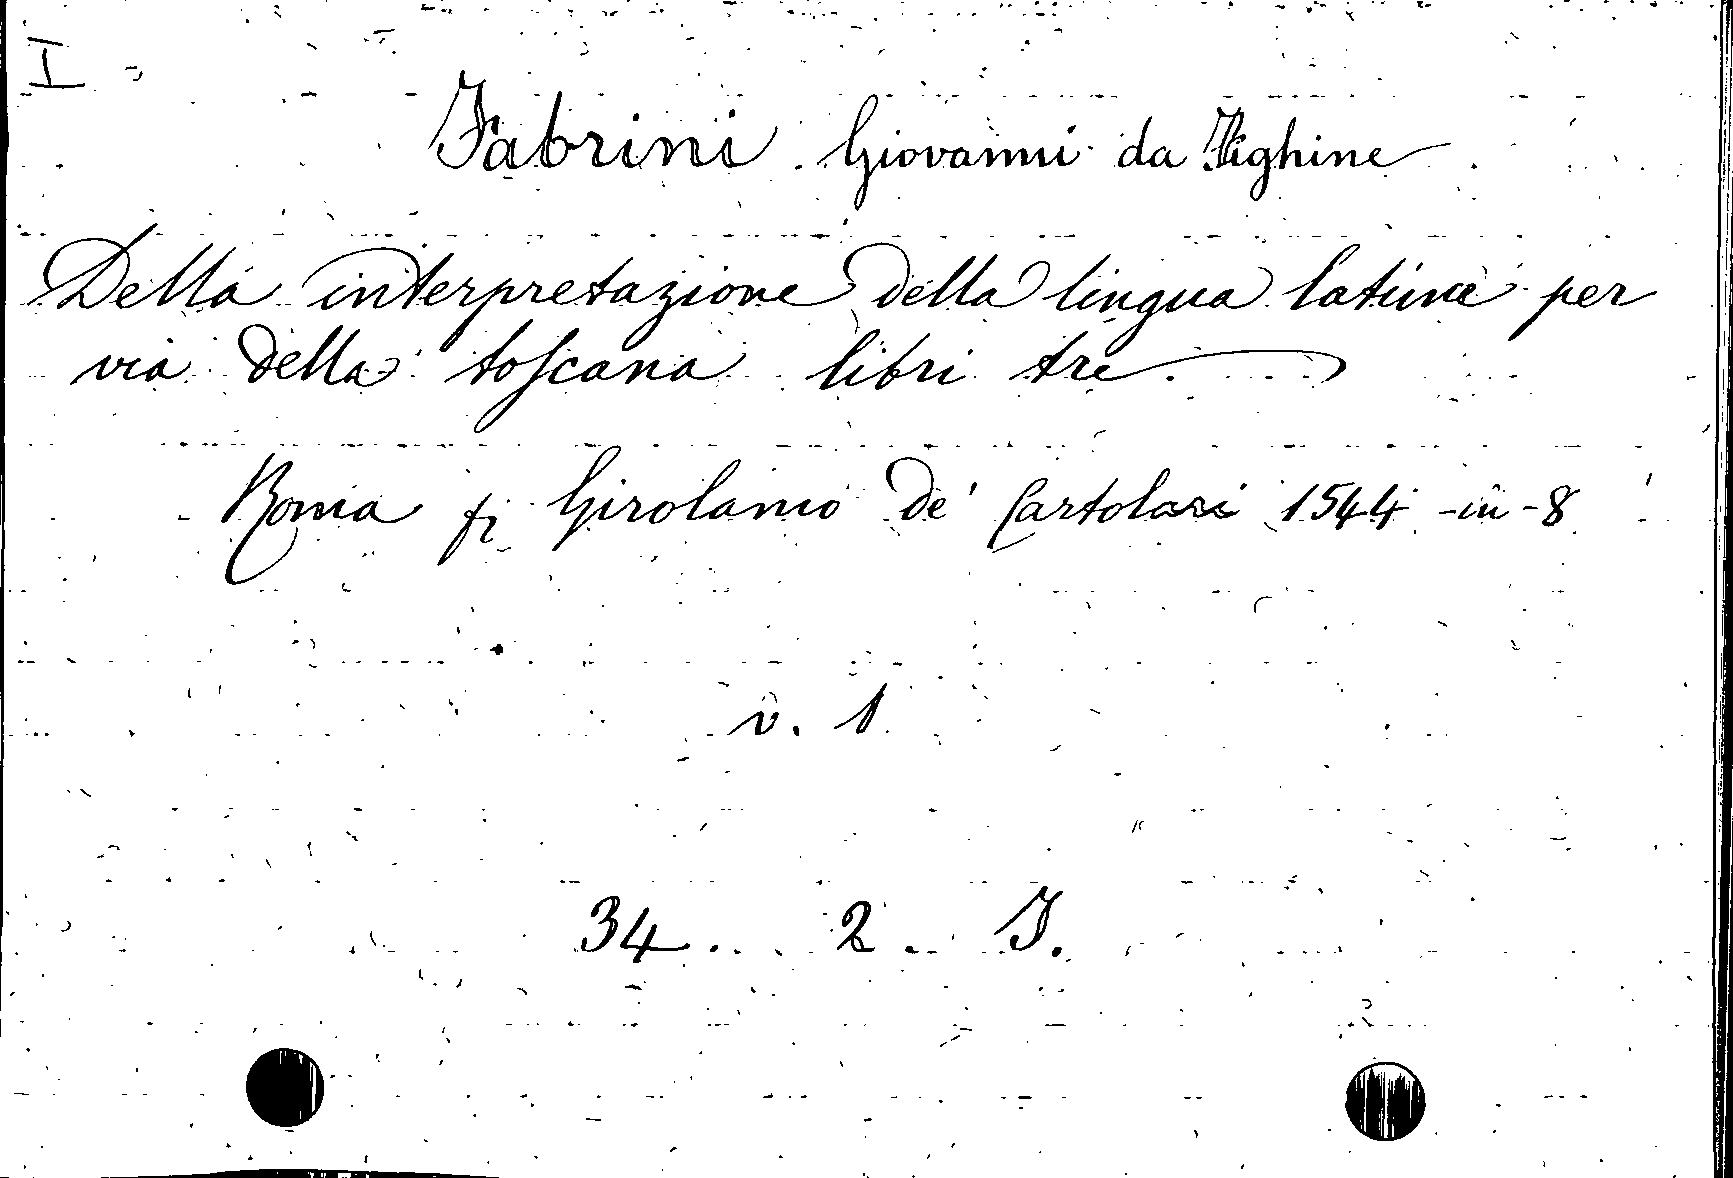 I
Fabrini Giovanni da Fighine
Della interpretazione della lingua latina per
via della toscana libri tre.
Roma fi Girolamo de' Cartolari 1544 - in - 8
v. 1
34. 2. I.